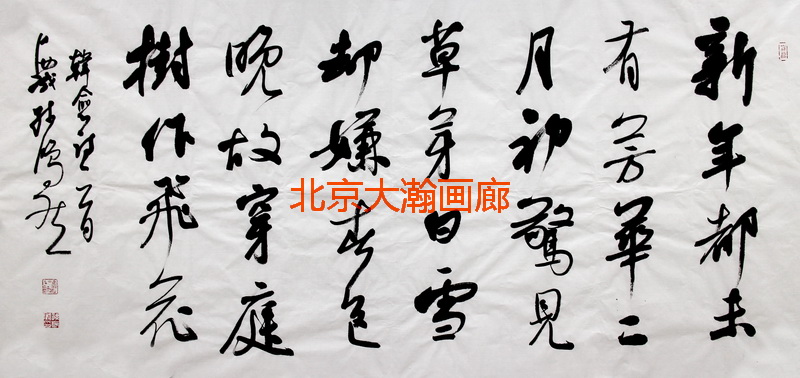 新年都未
有芳華二
月初驚見
草芽白雪
却嫌春色
晚故穿庭
樹作飛花
韓愈詩一首
北京大瀚画廊